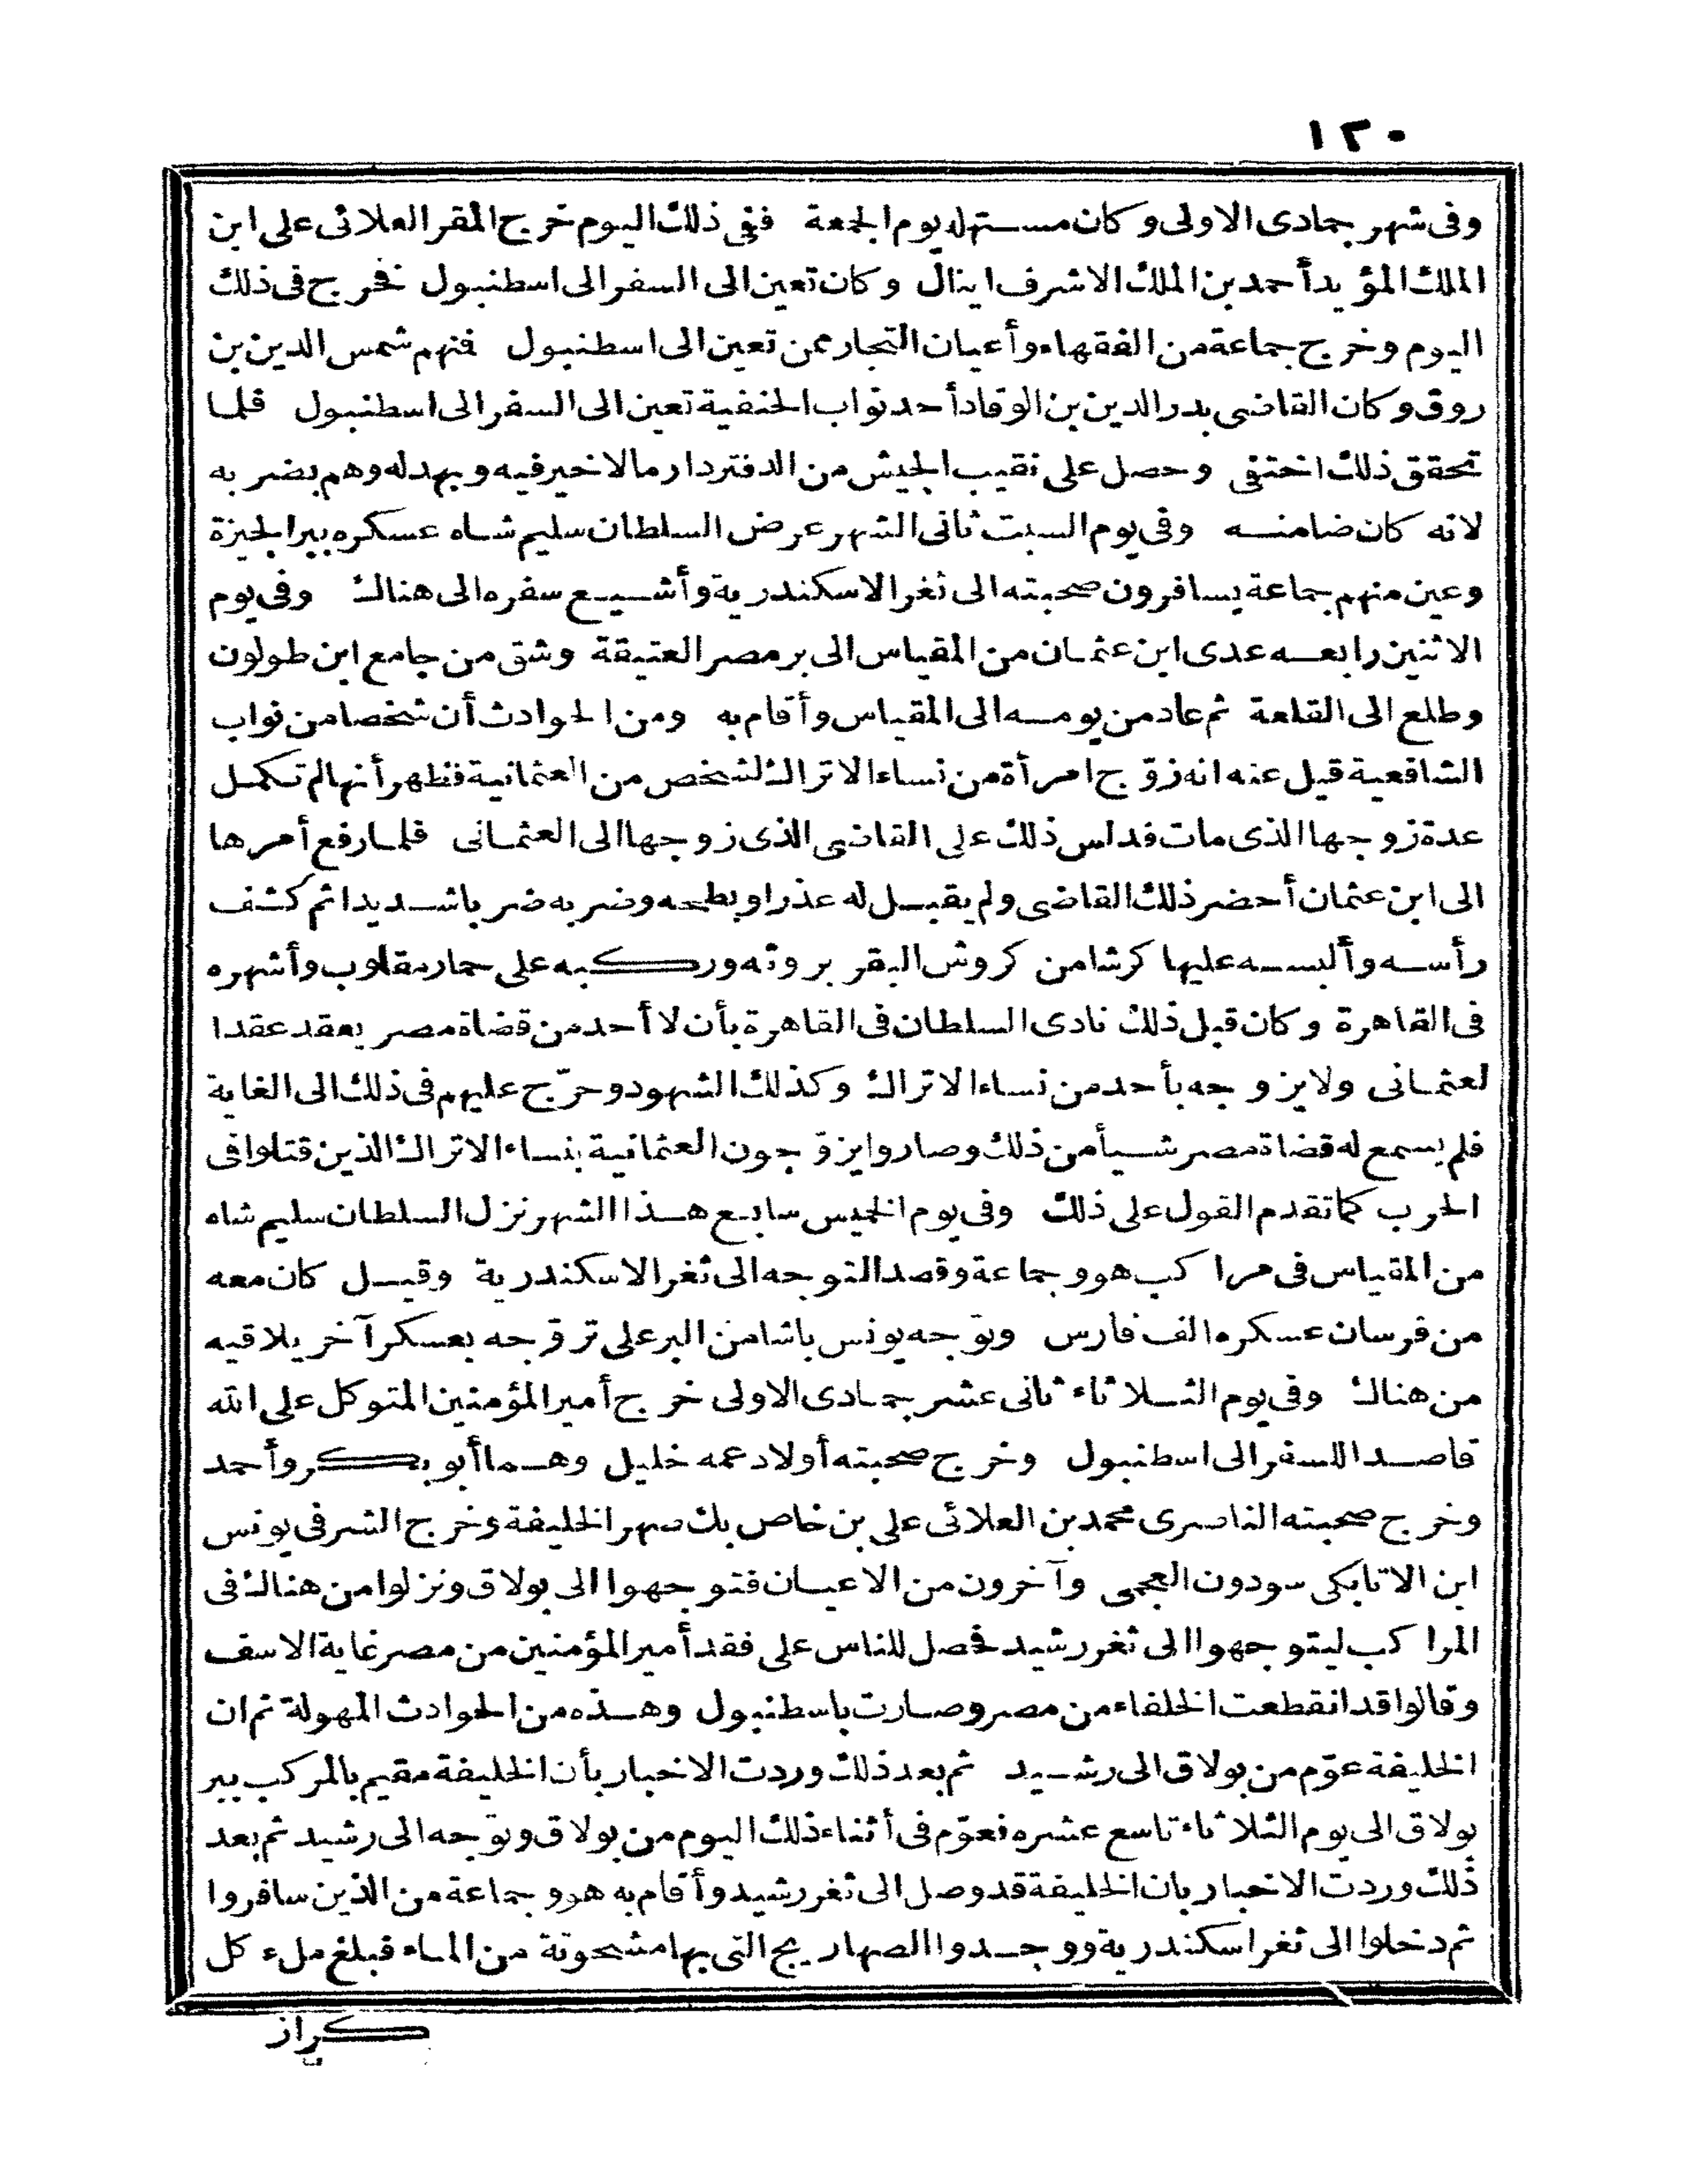 ١٢٠
وفى شهر جمادى الاولى وكان مستهله يوم الجمعة ففى ذلك اليوم خرج المقر العلائى على ابن
الملك المؤيد أحمد بن الملك الاشرف اينال وكان تعين الى السفر الى اسطنبول فخرج فى ذلك
اليوم وخرج جماعة من الفقهاء وأعيان التجار ممن تعين الى اسطنبول فنهم شمس الدين بن
روق وكان القاضى بدر الدين بن الوقاد أحد نواب الحنفية تعين الى السفر الى اسطنبول فلما
تحقق ذلك اختفى وحصل على نقيب الجيش من الدفتردار مالا خير فيه وبهدله وهم بضربه
لانه كان ضامنه وفى يوم السبت ثانى الشهر عرض السلطان سليم شاه عسكره ببر الجيزة
وعين منهم جماعة يسافرون صحبته الى ثغر الاسكندرية وأشيع سفره الى هناك وفى يوم
الاثنين رابعه عدى ابن عثمان من المقياس الى بر مصر العتيقة وشق من جامع ابن طولون
وطلع الى القلعة ثم عاد من يومه الى المقياس وأقام به ومن الحوادث أن شخصا من نواب
الشافعية قيل عنه انه زوّج امرأة من نساء الاتراك لشخص من العثمانية فظهر أنها لم تكمل
عدة زوجها الذى مات فدلس ذلك على القاضى الذى زوجها الى العثمانى فلما رفع أمرها
الى ابن عثمان أحضر ذلك القاضى ولم يقبل له عذرا وبطحه وضربه ضربا شديدا ثم كشف
رأسه وألبسه عليها كرشا من كروش البقر بروثه وركبه على حمار مقلوب وأشهره
فى القاهرة وكان قبل ذلك نادى السلطان فى القاهرة بأن لا أحد من قضاة مصر يعقد عقدا
لعثمانى ولا يزوجه بأحد من نساء الاتراك وكذلك الشهود وحرّج عليهم فى ذلك الى الغاية
فلم يسمع له قضاة مصر شيأ من ذلك وصاروا يزوّجون العثمانية بنساء الاتراك الذين قتلوا فى
الحرب كما تقدم القول على ذلك وفى يوم الخميس سابع هذا الشهر نزل السلطان سليم شاه
من المقياس فى مراكب هو وجماعة وقصد التوجه الى ثغر الاسكندرية وقيل كان معه
من فرسان عسكره الف فارس وتوّجه يونس باشا من البر على تروّجه بعسكر آخر يلاقيه
من هناك وفى يوم الثلاثاء ثانى عشر جمادى الاولى خرج أمير المؤمنين المتوكل على الله
قاصدا للسفر الى اسطنبول وخرج صحبته أولاد عمه خليل وهما أبو بكر وأحمد
وخرج صحبته الناصرى محمد بن العلائى على بن خاص بك صهر الخليفة وخرج الشرفى يونس
ابن الاتابكى سودون العجمى وآخرون من الاعيان فتوجهوا الى بولاق ونزلوا من هناك فى
المراكب ليتوجهوا الى ثغر رشيد فحصل للناس على فقد أمير المؤمنين من مصر غاية الاسف
وقالوا قد انقطعت الخلفاء من مصر وصارت باسطنبول وهذه من الحوادث المهولة ثم ان
الخليفة عوّم من بولاق الى رشيد ثم بعد ذلك وردت الاخبار بأن الخليفة مقيم بالمركب ببر
بولاق الى يوم الثلاثاء تاسع عشره فعوّم فى أثناء ذلك اليوم من بولاق وتوّجه الى رشيد ثم بعد
ذلك وردت الاخبار بان الخليفة قد وصل الى ثغر رشيد وأقام به هو وجماعة من الذين سافروا
ثم دخلوا الى ثغر اسكندرية ووجدوا الصهاريج التى بها مشحوتة من الماء فبلغ ملء كل
كراز